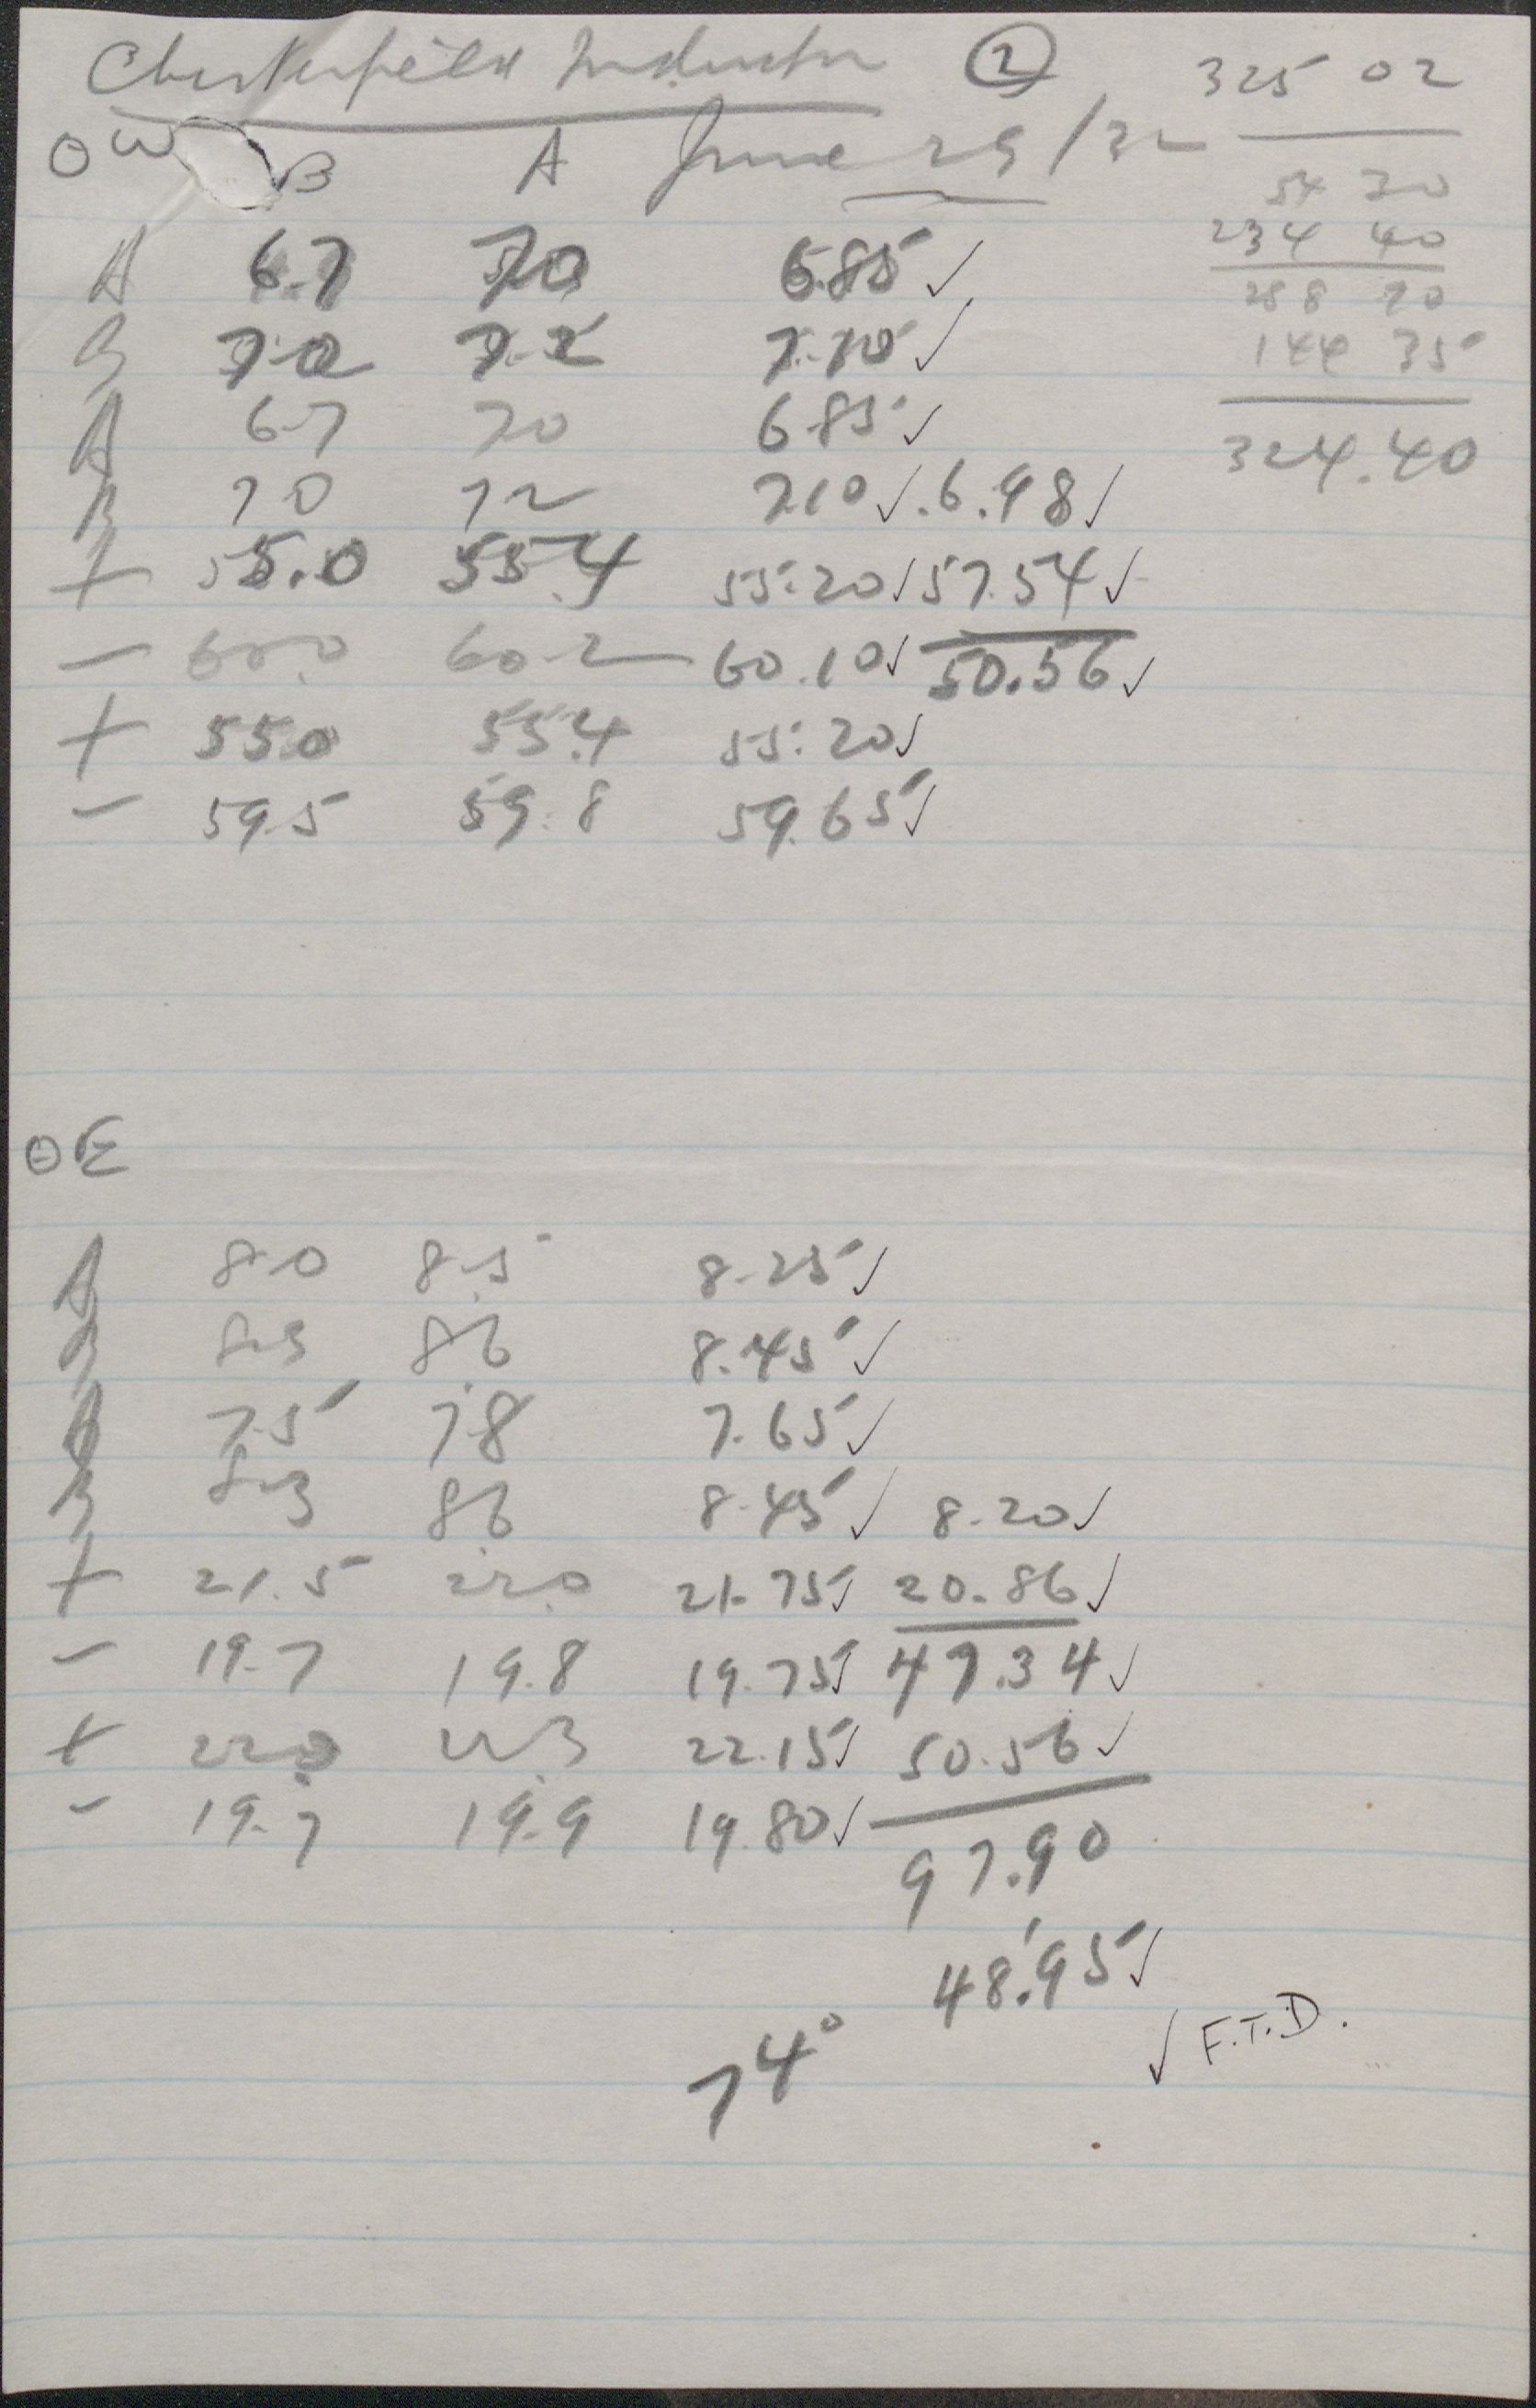 Chesterfield Inductor ② 325 02
OW B A June 29/32
54 30
A 6.7 70 6.85 ✓ 234 40
288 70
B 7.0 7.2 7.10 ✓ 144 35
A 6.7 70 6.85 ✓ 324.40
B 70 72 7.10 ✓ 6.98 ✓
+ 55.0 55.4 55.20 ✓ 57.54 ✓
− 60.0 60.2 60.10 ✓ 50.56 ✓
+ 55.0 55.4 55.20 ✓
− 59.5 59.8 59.65 ✓
OE
A 8.0 8.5 8.25 ✓
B 8.3 8.6 8.45 ✓
A 7.5 7.8 7.65 ✓
B 8.3 8.6 8.45 ✓ 8.20 ✓
+ 21.5 22.0 21.75 ✓ 20.86 ✓
− 19.7 19.8 19.75 ✓ 47.34 ✓
+ 22.0 22.3 22.15 ✓ 50.56 ✓
− 19.7 19.9 19.80 ✓
97.90
48.95 ✓
74° ✓ F.T.D.